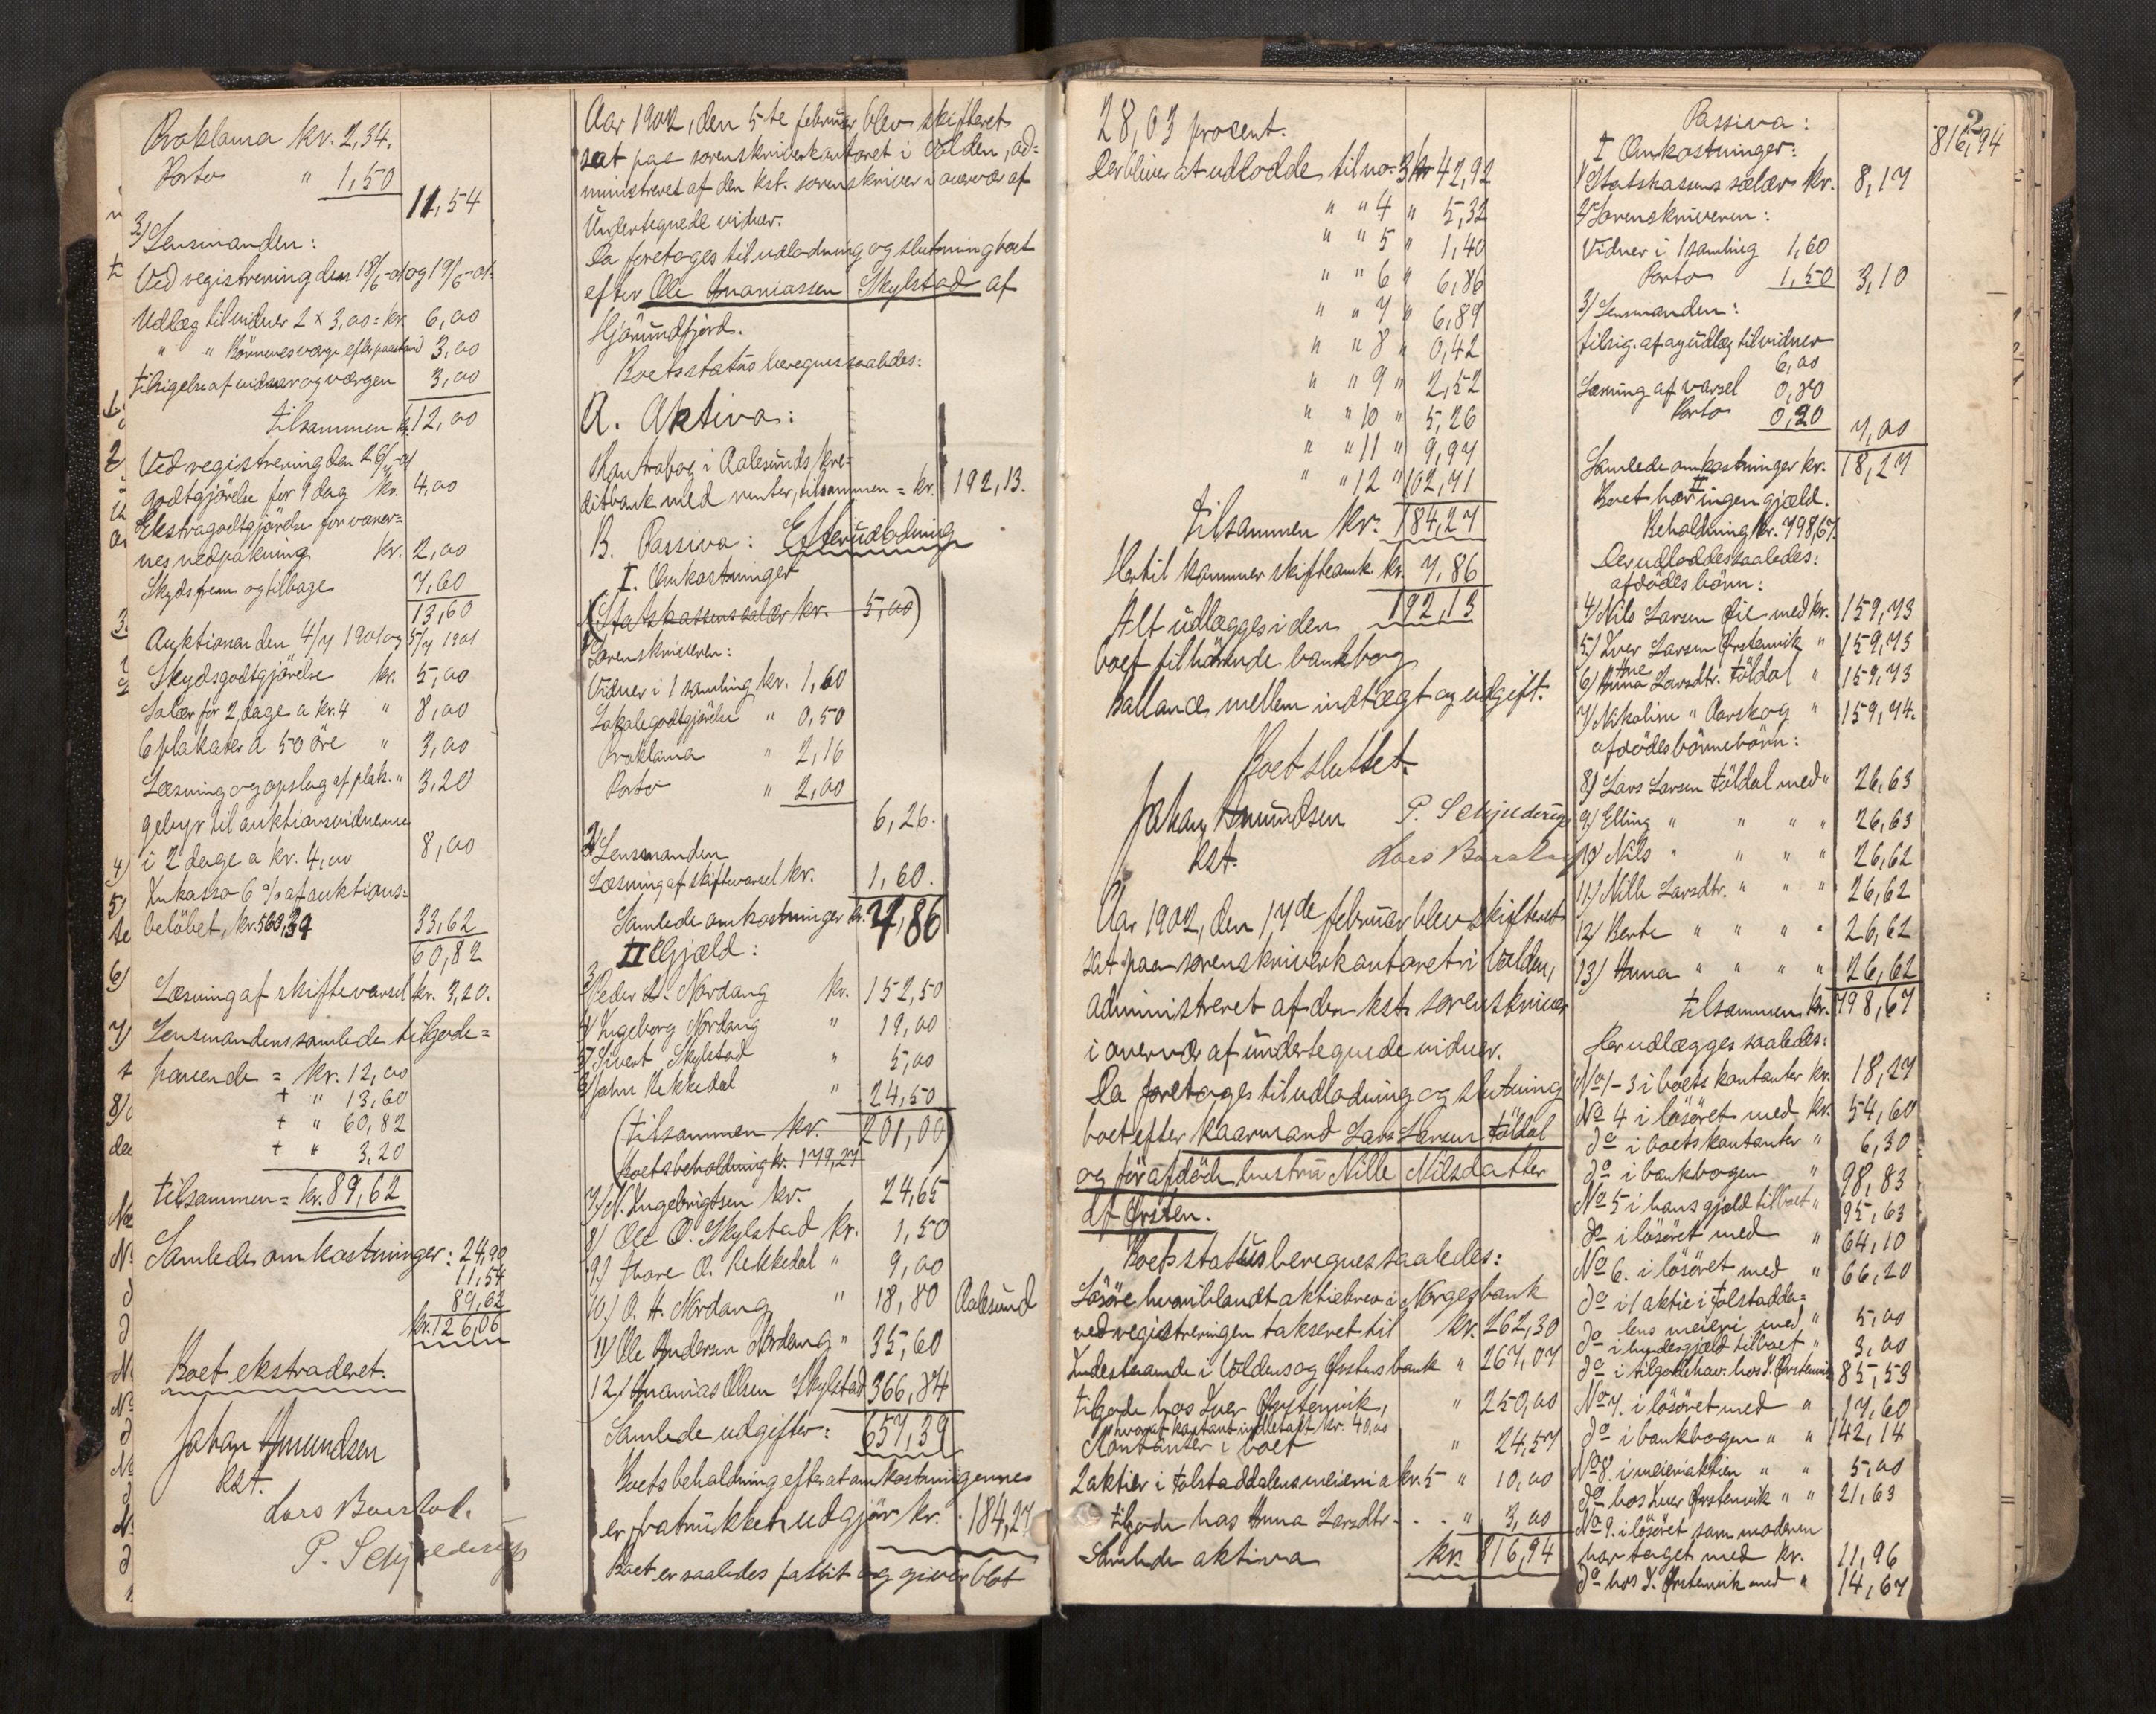 Proklama kr. 2,34.
Porto " 1,50
11,54
3) Lensmanden:
Ved registrering den 18/6-01 og 19/6-01
Udlæg til vidner 2 x 3,00 = kr. 6,00
" " Börnenes værge efter paastand 3,00
tilsigelse af vidner og værgen 3,00
tilsammen kr. 12,00
Ved registrering den 26/4-01
godtgjörelse for 1 dag kr. 4,00
Ekstragodtgjörelse for varer=
nes nedpakning kr. 2,00
Skyds frem og tilbage 7,60
13,60
Auktionen den 4/7 1901 og 5/7 1901
Skydsgodtgjörelse kr. 5,00
Salær for 2 dage a kr. 4 " 8,00
6 plakater a 50 öre " 3,00
Læsning og opslag af plak. " 3,20
gebyr til auktionsvidnerne
i 2 dage a kr. 4,00 8,00
Inkasso 6 % af auktions=
belöbet, kr. 560,39 33,62
60,82
Læsning af skiftevarsel kr. 3,20.
Lensmandens samlede tilgode=
havende = kr. 12,00
+ " 13,60
+ " 60,82
+ " 3,20
tilsammen = kr. 89,62
Samlede omkostninger: 24,90
11,54
89,62
kr. 126,06
Boet ekstraderet.
Johan Amundsen
kst.
Lars Baastol.
P. Schjelderup
Aar 1902, den 5te februar blev skifteret
sat paa sorenskriverkontoret i Volden, ad=
ministreret af den kst. sorenskriver i overvær af
Undertegnede vidner.
Da foretoges til udlodning og slutning boet
efter Ole Ananiassen Skylstad af
Hjörundfjord.
Boets status beregnes saaledes:
A. Aktiva:
Kontrabog i Aalesunds kre=
ditbank med renter, tilsammen = kr. 192,13.
B. Passiva: Efterudlodning
I. Omkostninger
(Statskassens salær kr. 5,00)
1) Sorenskriveren:
Vidner i 1 samling kr. 1,60
Lokalegodtgjörelse " 0,50
Proklama " 2,16
Porto " 2,00
6,26.
2) Lensmanden
Læsning af skiftevarsel kr. 1,60.
Samlede omkostninger kr. 7,86
II Gjæld:
3) Peder A. Nordang kr. 152,50
4) Ingeborg Nordang " 19,00
5) Sivert Skylstad " 5,00
6) John Rekkedal " 24,50
(tilsammen kr. 201,00)
Boets beholdning kr. 179,27
7) N. Ingebrigtsen kr. 24,65
8) Ole O. Skylstad kr. 1,50
9.) Thore O. Rekkedal " 9,00
10.) O. H. Nordang " 18,80 Aalesund
11) Ole Andersen Nordang " 35,60
12) Ananias Olsen Skylstad 366,84
Samlede udgifter: 657,39
Boets beholdning efter at omkostningerne
er fratrukket udgjör kr. 184,27
Boet er saaledes fallit og giver blot
28,03 procent.
Der bliver at udlodde til no. 3 kr 42,92
" " 4 " 5,32
" " 5 " 1,40
" " 6 " 6,86
" " 7 " 6,89
" " 8 " 0,42
" " 9 " 2,52
" " 10 " 5,26
" " 11 " 9,97
" " 12 " 102,71
tilsammen kr. 184,27
Hertil kommer skifteomk kr. 7,86
192,13
Alt udlægges i den
boet tilhörende bankbog
Ballance mellem indtægt og udgift.
Boet sluttet.
Johan Amundsen P. Schjelderup
kst. Lars Baastol
Aar 1902, den 17de februar blev skifteret
sat paa sorenskriverkontoret i Volden,
administreret af den kst. sorenskriver
i overvær af undertegnede vidner.
Da foretoges til udlodning og slutning
boet efter kaarmand Lars Larsen Földal
og för afdöde hustru Nille Nilsdatter
af Örsten.
Boets status beregnes saaledes:
Lösöre hvoriblandt aktiebrev i Norges bank
ved registreringen takseret til kr. 262,30
Indestaaende i Voldens og Örstens bank " 267,07
tilgode hos Iver Örstenvik, " 250,00
hvoraf kontant indbetalt kr. 40,00
Kontanter i boet " 24,57
2 aktier i Folstaddalens meieri a kr. 5 " 10,00
tilgode hos Anna Larsdtr. - - " 3,00
Samlede aktiva kr. 816,94
2
816,94
Passiva:
I Omkostninger:
1) Statskassens salær kr. 8,17
2) Sorenskriveren:
Vidner i 1 samling 1,60
Porto 1,50 3,10
3) Lensmanden:
tilsig. af og udlæg til vidner
6,00
Læsning af varsel 0,80
Porto 0,20 7,00
Samlede omkostninger kr. 18,27
II
Boet har ingen gjæld.
Beholdning kr. 798,67.
Der udloddes saaledes:
afdödes börn:
4) Nils Larsen Öie med kr. 159,73
5) Iver Larsen Örstenvik " 159,73
6) Ane Larsdtr. Földal " 159,73
7) Nikoline " Aarskog " 159,74.
afdödes börnebörn:
8) Lars Larsen Földal med " 26,63
9) Elling " " " " 26,63
10) Nils " " " " 26,62
11.) Nille Larsdtr. " " " 26,62
12) Berte " " " " 26,62
13) Anna " " " " 26,62
tilsammen kr. 798,67
Her udlægges saaledes:
No 1-3 i boets kontanter kr. 18,27
No 4 i lösöret med kr. 54,60
do i boets kontanter " 6,30
do i bankbogen " 98,83
No 5 i hans gjæld til boet " 95,63
do i lösöret med " 64,10
No 6. i lösöret med " 66,20
do i 1 aktie i Folstadda=
lens meieri med " 5,00
do i hendes gjæld til boet " 3,00
do i tilgodehav. hos I. Örstenvik 85,53
No 7. i lösöret med " 17,60
do i bankbogen " " 142,14
No 8. i meieriaktien " " 5,00
do hos Iver Örstenvik " " 21,63
No 9. i lösöret som moderen
har taget med kr. 11,96
do hos I. Örstenvik med " 14,67